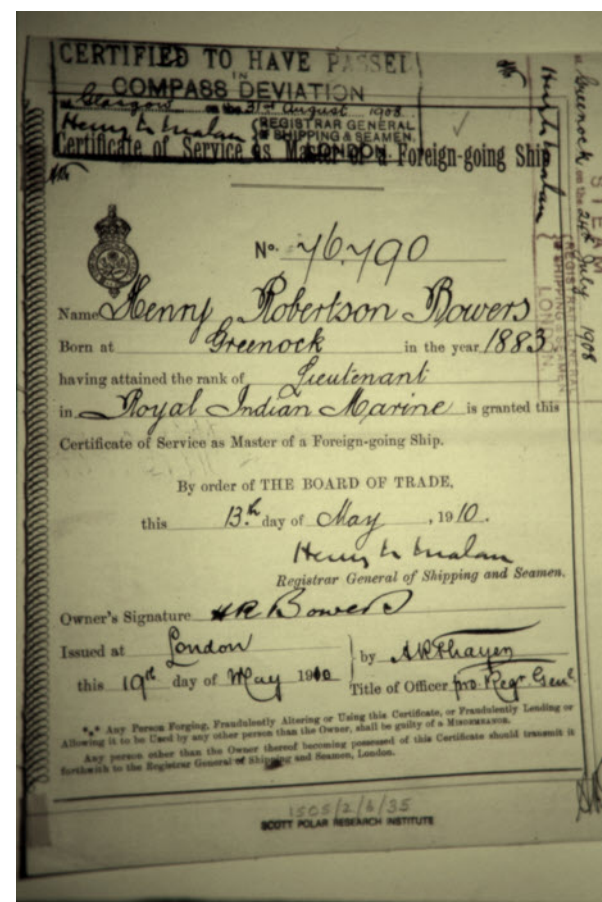 CERTIFIED TO HAVE PASSED
IN
COMPASS DEVIATION
at Glasgow on the 31st August 1908
REGISTRAR GENERAL
OF SHIPPING & SEAMEN.
LONDON.
Certificate of Service as Master of a Foreign-going Ship
No. 76.790
Name Henry Robertson Bowers
Born at Greenock in the year 1883
having attained the rank of Lieutenant
in Royal Indian Marine is granted this
Certificate of Service as Master of a Foreign-going Ship.
By order of THE BOARD OF TRADE,
this 13th day of May, 1910.
Registrar General of Shipping and Seamen.
Owner's Signature HR Bowers
Issued at London
this 19th day of May 1910
by
Title of Officer pro. Regr. Genl
*** Any Person Forging, Fraudulently Altering or Using this Certificate, or Fraudulently Lending or
Allowing it to be Used by any other person than the Owner, shall be guilty of a MISDEMEANOR.
Any person other than the Owner thereof becoming possessed of this Certificate should transmit it
forthwith to the Registrar General of Shipping and Seamen, London.
1505/2/6/35
SCOTT POLAR RESEARCH INSTITUTE
STEAM
at Greenock on the 24th July 1908
REGISTRAR GENERAL
OF SHIPPING & SEAMEN
LONDON.